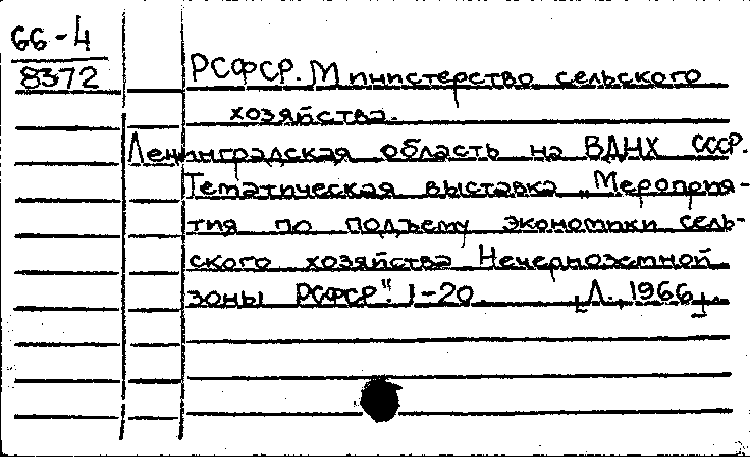 66-4
8372
РСФСР. Министерство сельского
хозяйства.
Ленинградская область на ВДНХ СССР.
Тематическая выставка „Мероприя-
тия по подъему экономики сель-
ского хозяйства Нечерноземной
зоны РСФСР". 1-20. [Л., 1966].